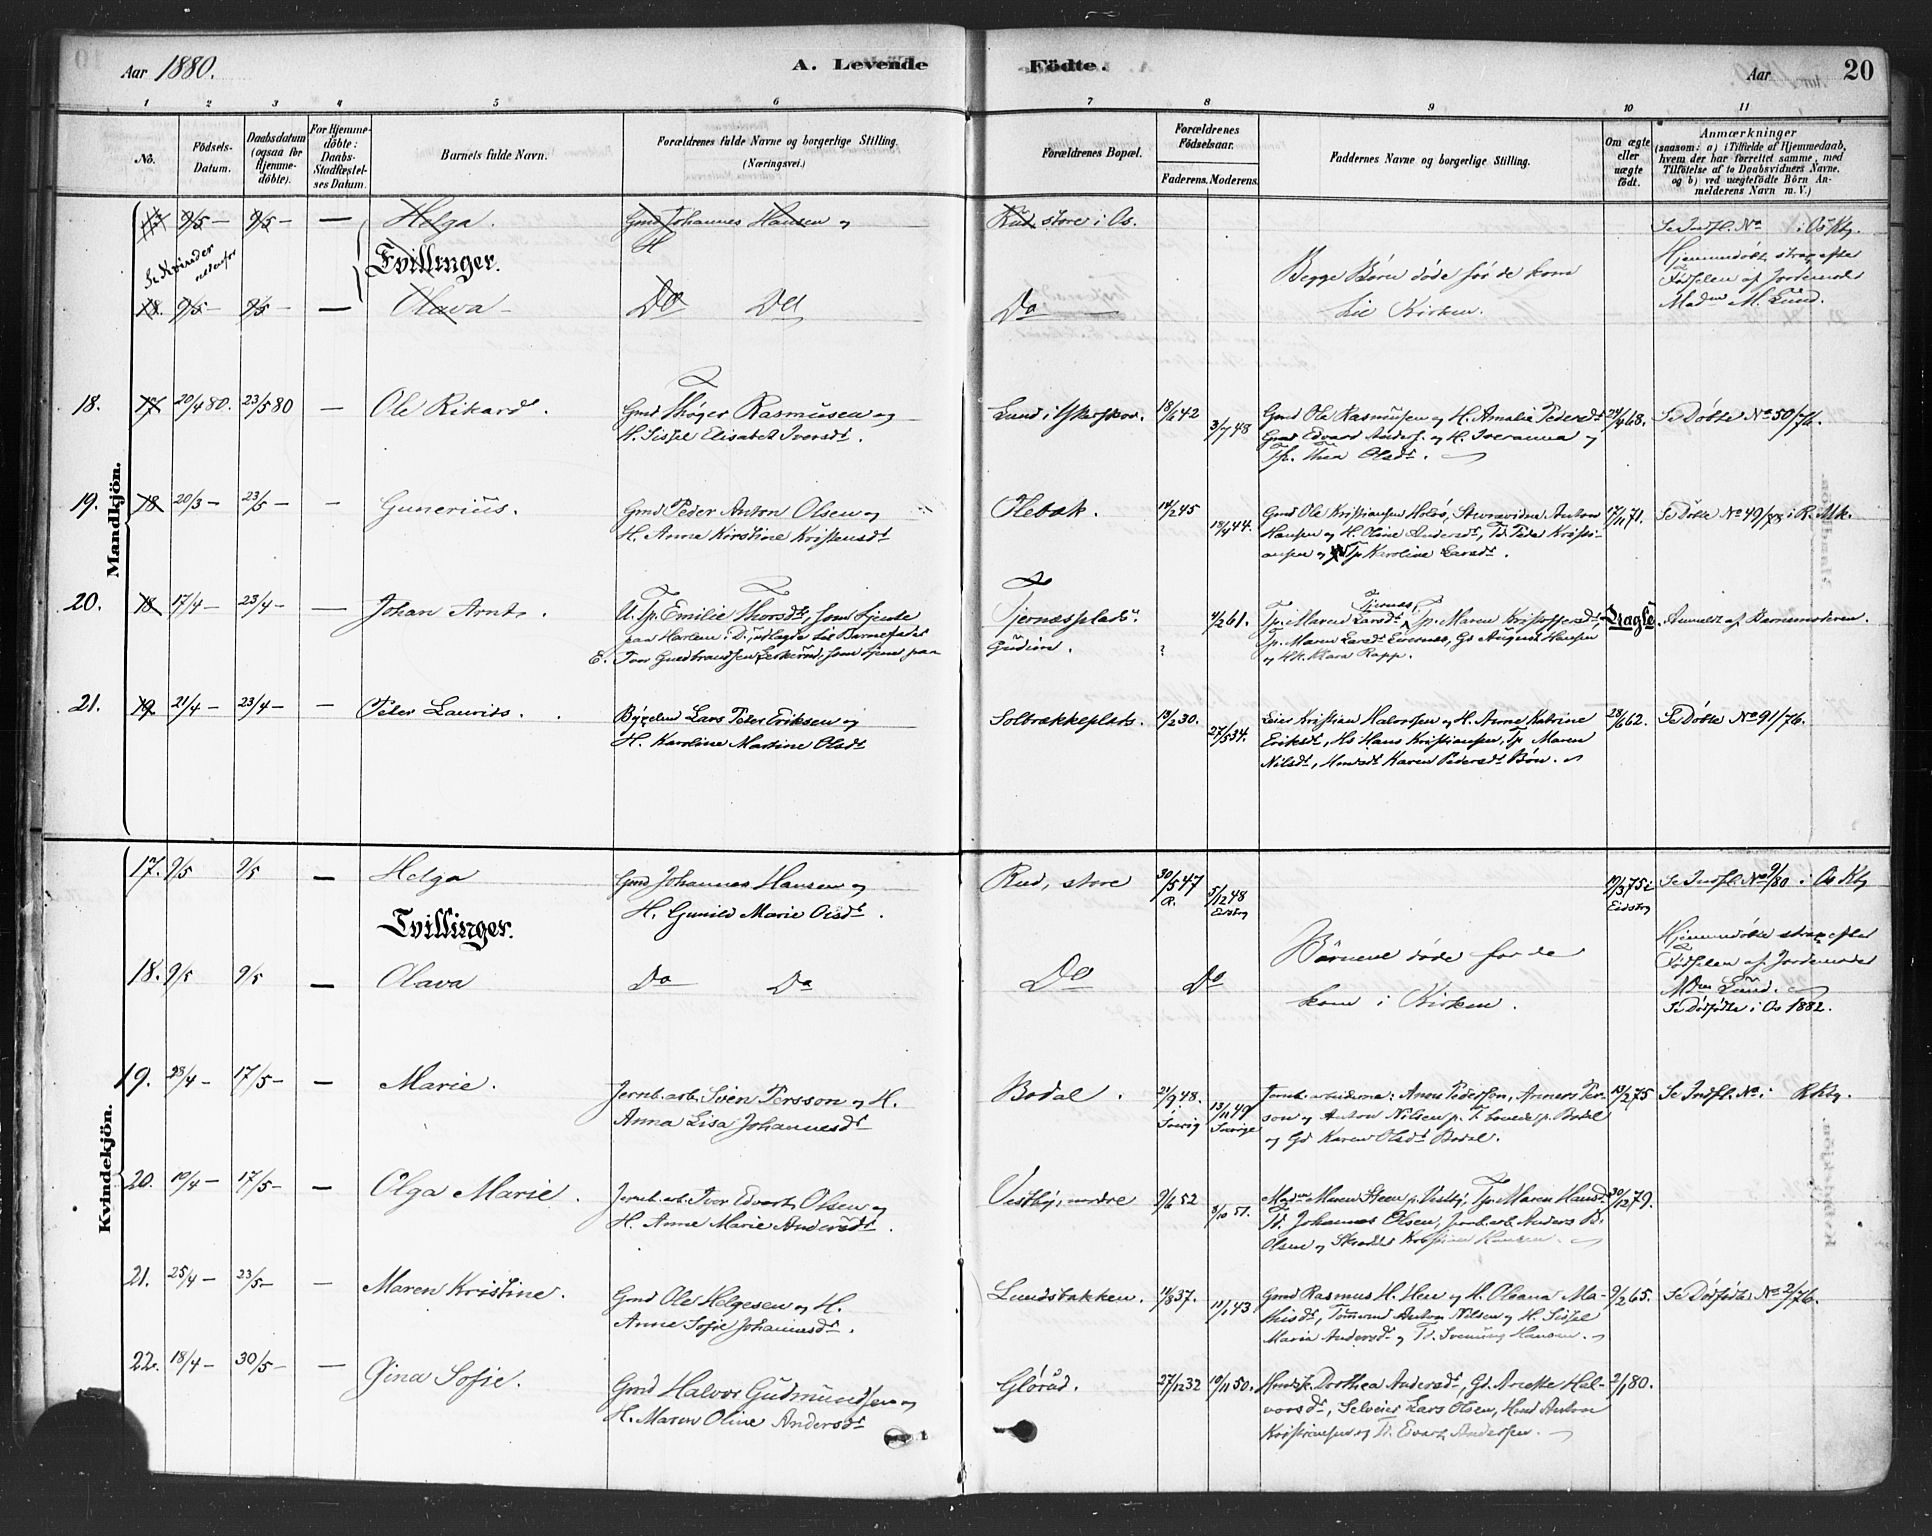 Aar 1880.
A. Levende
Födte.
Aar
20
1 2 3 4 5 6 7 8 9 10 11
No.
Födsels-Datum.
Daabsdatum (ogsaa for Hjemme-döbte).
For Hjemme-döbte: Daabs-Stadfæstel-ses Datum.
Barnets fulde Navn.
Forældrenes fulde Navne og borgerlige Stilling. (Næringsvei.)
Forældrenes Bopæl.
Forældrenes Födselsaar.
Faderens. Moderens.
Faddernes Navne og borgerlige Stilling.
Om ægte eller uægte födt.
Anmærkninger
(saasom: a) i Tilfælde af Hjemmedaab,
hvem der har forrettet samme, med
Tilföielse af to Daabsvidners Navne,
og b) ved uægtefödte Börn An-
melderens Navn m. V.)
Mandkjön.
17 9/5 – 9/5 – — Helga. Gmd Johannes Hansen og
H
Rud store i Os. Se Indfl. No i Os Kbg.
Se Kvinder nedenfor
Tvillinger.
Begge Børn døde før de kom
til Kirken.
Hjemmedøbt strax efter
Fødselen af Jordemoder
Madm M. Lund.
18. 9/5 – 9/5 — Olava – Do Do Do
18. 17 20/4 80. 23/5 80 – Ole Rikard. Gmd Thøger Rasmusen og
H. Sissel Elisabet Iversdt.
18/6 42 3/7 48
Gmd Ole Rasmusen og H. Amalie Pedersdt
Gmd Edvard Anders. og H. Iveranna og
Tp. Thea Olsdt.
24/4 68. Se Døbte No 50/76.
19. 18 20/3 – 23/5 – – Gunerius. Gmd Peder Anton Olsen og
H. Anna Kirstine Kristensdt
Olebæk. 14/2 45 13/4 44.
Gmd Ole Kristiansen Holøs, Anton
Hansen og H. Oline Andersdt, Td. Peder Kristi-
ansen og Tp Karoline Larsdt.
17/11 71. Se Døbte No 49/78 i R. Mk.
20. 18 17/4 – 23/4 – — Johan Arnt. U. Tp. Emilie Thorsdt, som tjente
paa Harlem. D. udlagde til Barnefader
E. Iver Gudbrandsen, som tjener paa
Tjernæsplads.
4/2 61.
Tp. Maren Larsdt Tjernæs, Tp. Maren Kristoffersdt,
Tp. Maren Larsdt Evernæs, Gs August Hansen
og Klara Rapp.
Uægte. Anmeldt af Barnemoderen.
21. 19. 21/4 – 23/4 – — Peter Laurits. Bygselm Lars Peter Eriksen og
H. Karoline Martine Olsdt
Solbrækkeplads. 13/2 30. 27/5 34.
Leier Kristian Halvorsen og H. Anne Katrine
Eriksdt, Hs Hans Kristiansen, Tp Maren
Nilsdt, Karen Pedersdt Bøn.
28/6 62. Se Døbte No 91/76.
Kvindekjön.
17. 9/5 9/5 — Helga Gmd Johannes Hansen og
H. Gunild Marie Olsdt.
Rud, store 30/5 47 R. 5/12 48 Eidsbg
19/3 75 i Eidsbg Se Indfl. No 9/80 i Os Kbg
Tvillinger.
Børnene døde før de
kom i Kirken.
Hjemmedøbte strax efter
Fødselen af Jordemoder
Mdm Lund.
Se Dødfødte i Os 1882.
18. 9/5 9/5 — Olava Do Do Do Do
19. 23/4 – 17/5 – — Marie. Jernb.arb. Sven Persson og H.
Anna Lisa Johannesdt
Bodal. 21/9 48. Sverig 13/11 49 Sverige
Jernb.arbeiderne: Anders Pedersen, Anders Per-
son og Anton Nilsen p. Bodal
og Gd Karen Olsdt Bodal.
13/2 75 Se Indfl. No. i RKbg.
20. 19/4 – 17/5 – — Olga Marie. Jernb.arb. Iver Edvart Olsen og
H. Anne Marie Andersdt.
Vestby, nordre 9/6 52 8/10 51.
Madm Maren Steen p. Vestby, Tp. Maren Hansdt
Td. Johannes Olsen, Jernb.arb. Anders B.
Olsen og Skrædder Kristian Hansen.
30/12 79.
21. 25/4 – 23/5 – – Maren Kristine. Gmd Ole Helgesen og H.
Anne Sofie Johannesdt.
Lundsbakken. 14/8 37. 11/1 43.
Gmd Rasmus H. Hen og H. Oleana Ma-
thisdt, Tømmermd Anton Nilsen og H. Sissel
Marie Andersdt og Td. Svenung Hansen.
9/2 65. Se Dødfødte No 2/76.
22. 18/4 – 30/5 – — Gina Sofie. Gmd Halvor Gudmundsen og
H. Maren Oline Andersdt
Glørud. 27/12 32 19/11 50.
Dorthea Andersdt, Gd. Hal-
vorsdt, Selveier Lars Olsen, Anton
Kristiansen og Td. Edvart Andersen.
2/1 80.